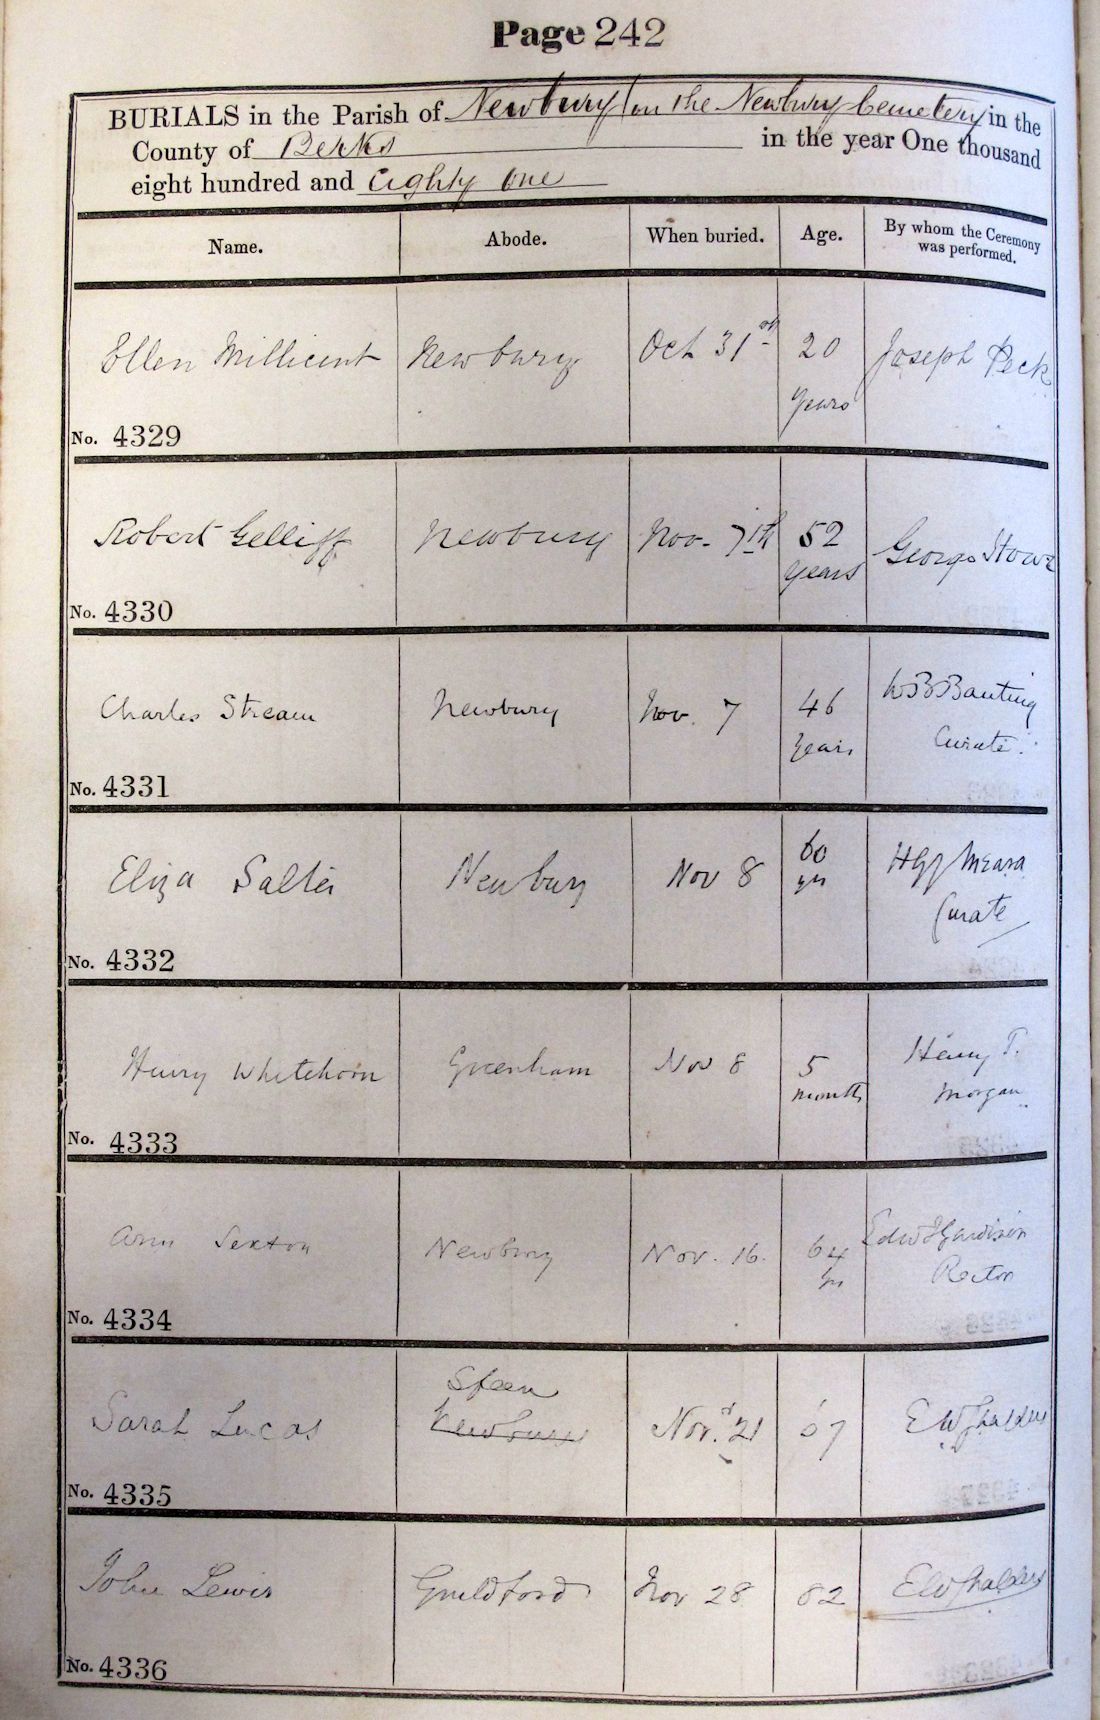 Page 242
BURIALS in the Parish of Newbury in the Newbury Cemetery in the
County of Berks in the year One thousand
eight hundred and eighty one
Name. Abode. When buried. Age. By whom the Ceremony
was performed.
Ellen Millicent Newbury Oct 31st 20 Joseph Peck
years
No. 4329
Robert Gelliff Newbury Nov. 7th 52 George Howe
years
No. 4330
Charles Stream Newbury Nov. 7 46 W B Banting
years Curate.
No. 4331
Eliza Salter Newbury Nov 8 60 Meara
yrs Curate
No. 4332
Henry Whitehorn Greenham Nov 8 5 Henry T.
months Morgan
No. 4333
Ann Sexton Newbury Nov. 16. 64 Edw
yrs Rector
No. 4334
Speen
Sarah Lucas Newbury Nov. 21 67
No. 4335
John Lewis Guildford Nov 28 82
No. 4336